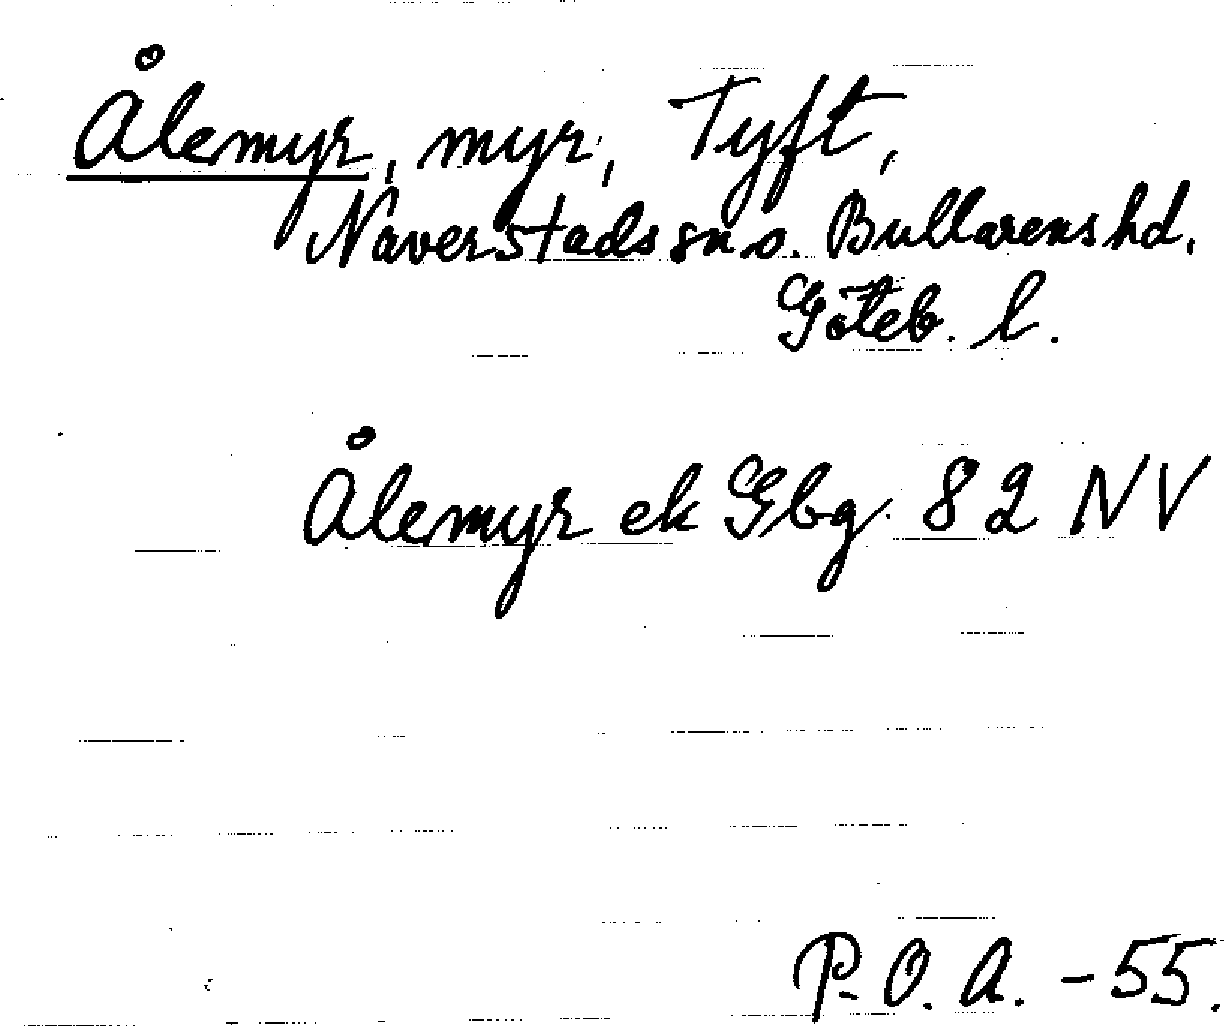 Ålemyr, myr, Tyft,
Naverstads sn o. Bullarens hd.
Göteb. l.
Ålemyr ek Gbg. 82 NV
P. O. A. - 55.